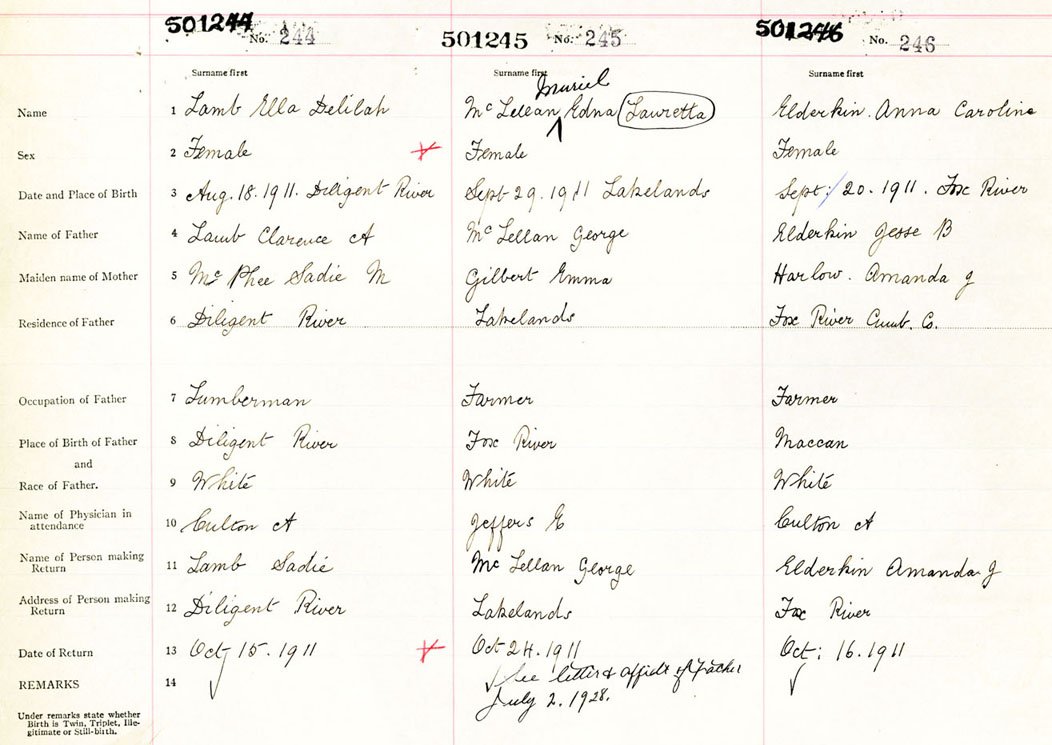 501244 No. 244 501245 No. 245 501246 No. 246
Surname first Surname first Surname first
Muriel
Name 1 Lamb Ella Delilah McLellan Edna (Lauretta) Elderkin. Anna Caroline
Sex 2 Female Female Female
Date and Place of Birth 3 Aug. 18. 1911. Diligent River Sept 29. 1911 Lakelands Sept: 20. 1911. Fox River
Name of Father 4 Lamb Clarence A McLellan George Elderkin Jesse B
Maiden name of Mother 5 McPhee Sadie M Gilbert Emma Harlow. Amanda J
Residence of Father 6 Diligent River Lakelands Fox River Cumb. Co.
Occupation of Father 7 Lumberman Farmer Farmer
Place of Birth of Father 8 Diligent River Fox River Maccan
and
Race of Father. 9 White White White
Name of Physician in
attendance 10 Culton A Jeffers E Culton A
Name of Person making
Return 11 Lamb Sadie McLellan George Elderkin Amanda J
Address of Person making
Return 12 Diligent River Lakelands Fox River
Date of Return 13 Oct 15. 1911 Oct 24. 1911 Oct: 16. 1911
REMARKS 14 See letter & affidt of Father
July 2. 1928.
Under remarks state whether
Birth is Twin, Triplet, Ille-
gitimate or Still-birth.